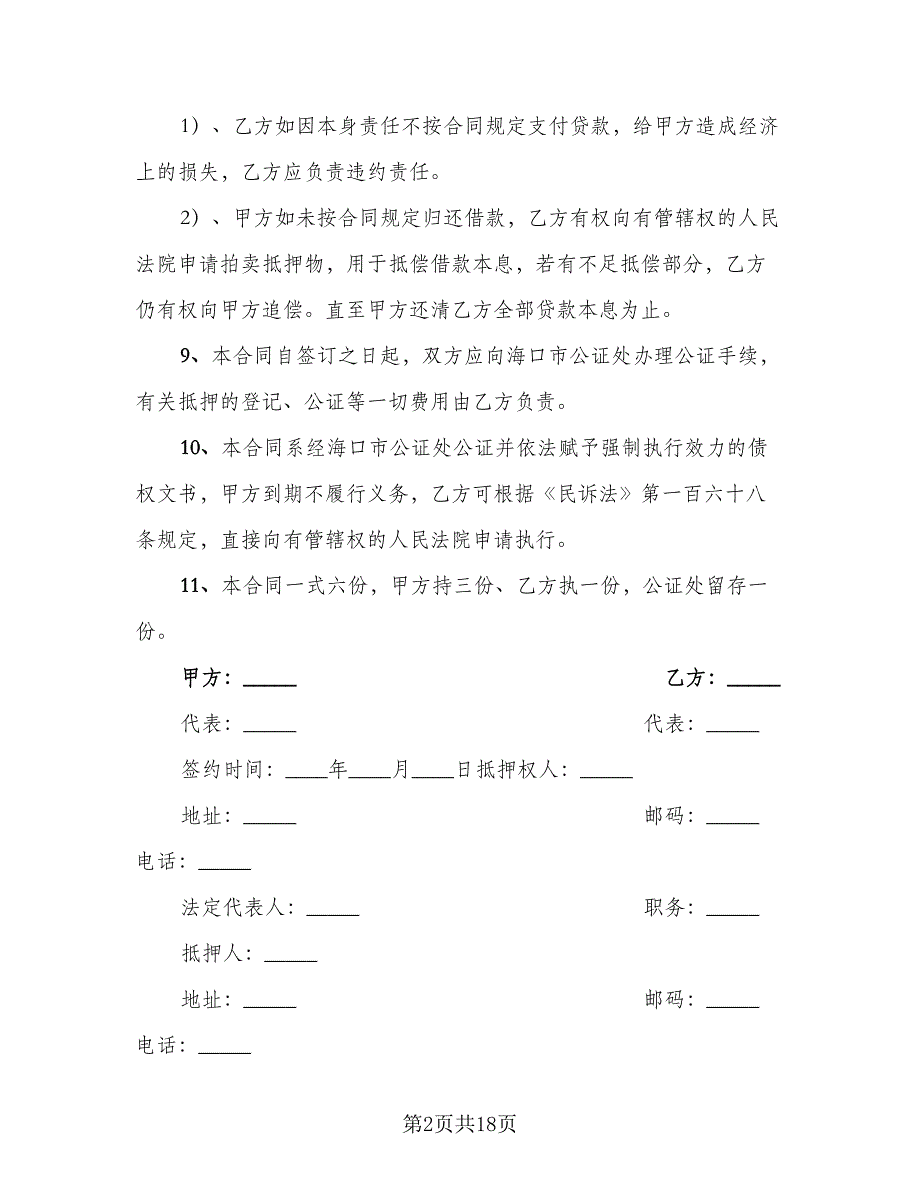 1）、乙方如因本身责任不按合同规定支付贷款，给甲方造成经济
上的损失，乙方应负责违约责任。
2）、甲方如未按合同规定归还借款，乙方有权向有管辖权的人民
法院申请拍卖抵押物，用于抵偿借款本息，若有不足抵偿部分，乙方
仍有权向甲方追偿。直至甲方还清乙方全部贷款本息为止。
9、本合同自签订之日起，双方应向海口市公证处办理公证手续，
有关抵押的登记、公证等一切费用由乙方负责。
10、本合同系经海口市公证处公证并依法赋予强制执行效力的债
权文书，甲方到期不履行义务，乙方可根据《民诉法》第一百六十八
条规定，直接向有管辖权的人民法院申请执行。
11、本合同一式六份，甲方持三份、乙方执一份，公证处留存一
份。
甲方：_____ 乙方：_____
代表：_____ 代表：_____
签约时间：____年____月____日抵押权人：_____
地址：_____ 邮码：_____
电话：_____
法定代表人：_____ 职务：_____
抵押人：_____
地址：_____ 邮码：_____
电话：_____
第2页共18页